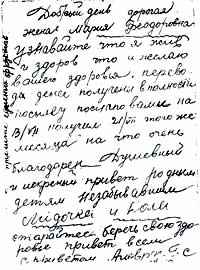 Добрый день дорогая
жена Мария Феодоровна
узнавайте что я жив
и здоров что и желаю
вашего здоровья. перево
да денег получены в полности
посылку посл. вами на
13/VII получил 21/VII того же
месяца на что очень
благодарен Душевный
и искрений привет родним
детям незабывшим
Лидочкеи и Коле
старайтесь беречь свою здо
ровье привет всем
с приветом А. С